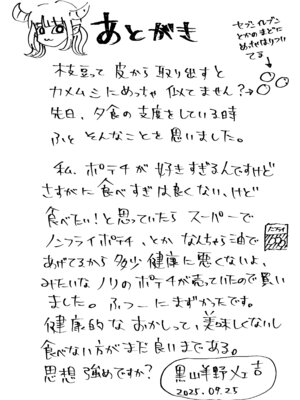 あとがき
セブンイレブン
とかのまどに
めっちゃはりつい
てる
枝豆って皮から取り出すと
カメムシにめっちゃ似てません?→
先日、夕食の支度をしている時
ふと そんなことを思いました。
私、ポテチが好きすぎるんですけど
さすがに食べすぎは良くない、けど
食べたい!と思っていたら スーパーで
ノンフライポテチ、とか なんちゃら油で
あげてるから 多少健康に悪くないよ、
みたいなノリのポテチが売っていたので買い
ました。ふつーにまずかったです。
健康的なおかしって、美味しくないし
食べない方がまだ良いまである。
思想 強めですか?
黒山羊野メェ吉
2025.09.25